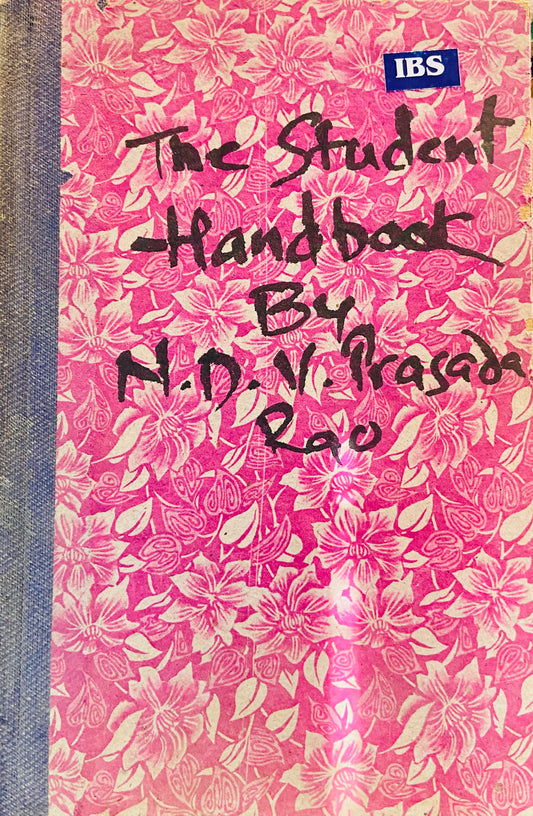 IBS
The Student
Handbook
By
N.D.V. Prasada
Rao